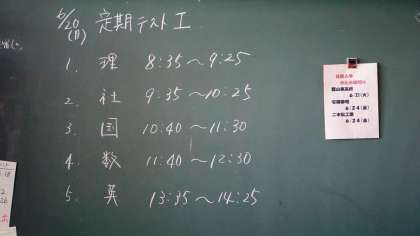 6/20 (月) 定期テスト I
1. 理 8:35～9:25
2. 社 9:35～10:25
3. 国 10:40～11:30
4. 数 11:40～12:30
5. 英 13:35～14:25
６/２１(火)
６/２４(金)
二本松工業
６/２４(金)